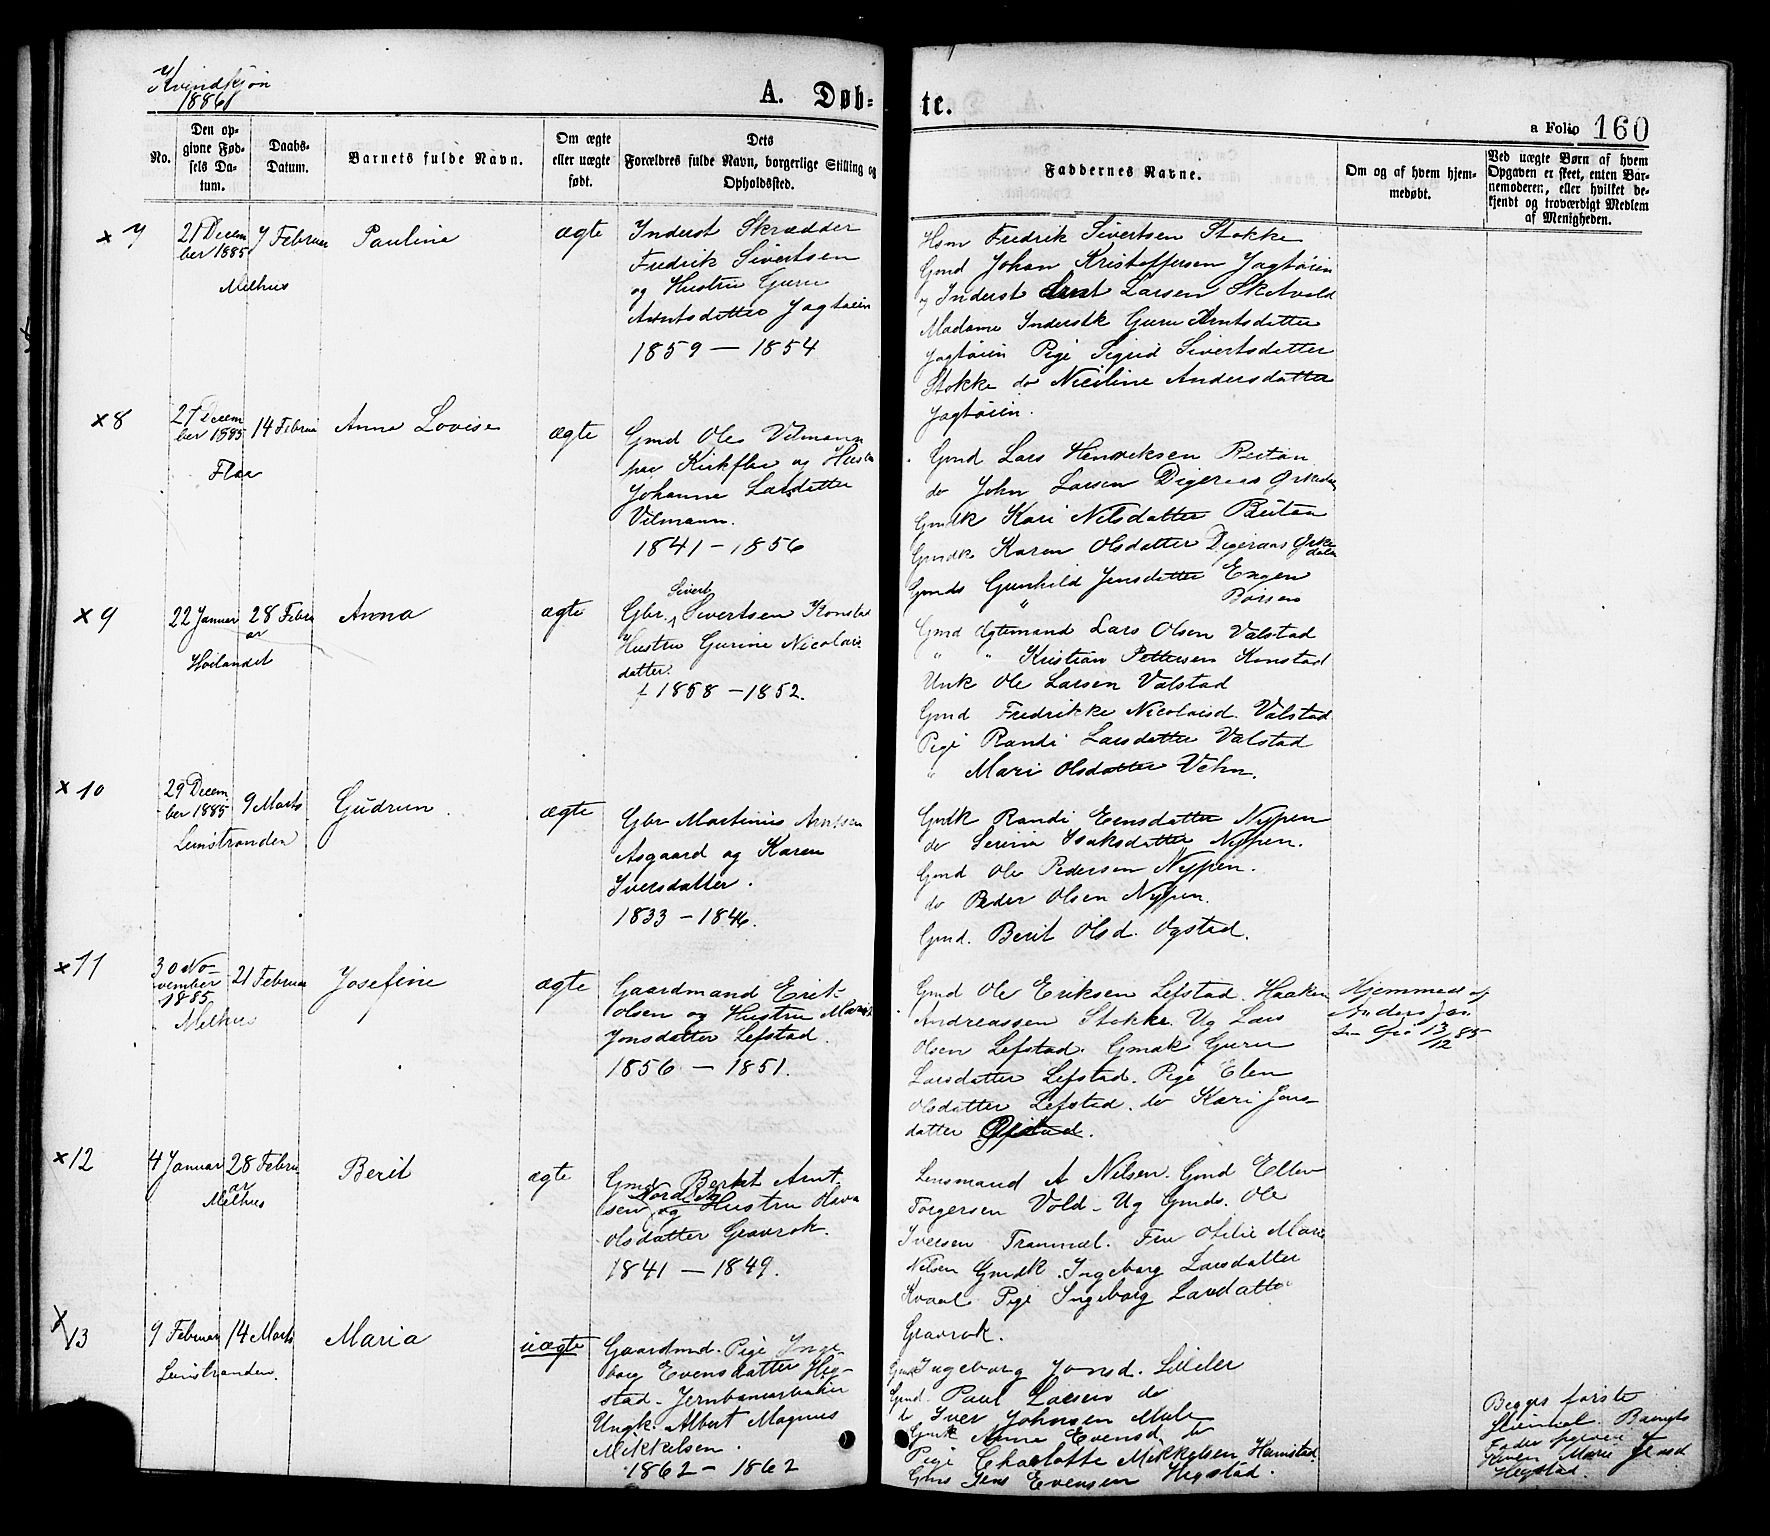 Kvindkjøn
1886
A. Døb-
te.
a Folio 160
No.
Den op-
givne Fød-
sels Da-
tum.
Daabs-
Datum.
Barnets fulde Navn.
Om ægte
eller uægte
født.
Dets
Forældres fulde Navn, borgerlige Stilling og
Opholdssted.
Faddernes Navne.
Om og af hvem hjem-
medøbt.
Ved uægte Børn af hvem
Opgaven er skeet, enten Bar-
nemoderen, eller hvilket be-
kjendt og troværdigt Medlem
af Menigheden.
x 7
21 Decem
ber 1885
7 Februar
Melhus
Pauline
ægte
Inderst Skrædder
Fredrik Sivertsen
og Hustru Guru
Arntsdatter Jagtøien
1859 — 1854
Hsm Fredrik Sivertsen Stokke
Gmd Johan Kristoffersen Jagtøien
og Inderst Arnt Larsen Sketvold
Madame Inderstk Guru Arntsdatter
Jagtøien Pige Sigrid Sivertsdatter
Stokke do Nicoline Andersdatter
Jagtøien.
x 8
27 Decem
ber 1885
14 Februa
Flaa
Anna Lovise
ægte
Gmd Ole Vilmann
paa Kirkflaa og Hustru
Johanna Larsdatter
Vilmann.
1841 - 1856
Gmd Lars Henriksen
do John Larsen Digeraas Orkedal
Gmdk Kari Nilsdatter
Gmdk Karen Olsdatter Digeraas Orke
dalen
Gmds Gunhild Jensdatter Engen
" Børsen
x 9
22 Januar
28 Febru
ar
Høilandet
Anna
ægte
Sivert
Gbr. Sivertsen Konstad
Hustru Gurine Nicolais
datter.
f 1858 - 1852.
Gmd Ægtemand Lars Olsen Valstad
" " Kristian Pettersen Konstad
Unk Ole Larsen Valstad
Gmd Fredrikke Nicolaisd. Valstad
Pige Randi Larsdatter Valstad
" Mari Olsdatter Vehn.
x 10
29 Decem
ber 1885
9 Marts
Leinstranden
Gudrun
ægte
Gbr Martinus Arntsen
Asgaard og Karen
Iversdatter.
1833 - 1846.
Gmdk Randi Ernsdatter Nypen
do Serina Isaksdatter Nypen.
Gmd Ole Pedersen Nypen.
do Peder Olsen Nypen.
Gmd. Berit Olsd. Ogstad.
x 11
30 No-
vember
1885
21 Februar
Melhus
Josefine
ægte
Gaardmand Erik
Olsen og Hustru Marit
Jonsdatter Lefstad.
1856 - 1851.
Gmd Ole Eriksen Lefstad. Haaken
Andreassen Stokke. Ug Lars
Olsen Lefstad. Gmdk Guru
Larsdatter Lefstad. Pige Elen
Olsdatter Lefstad. do Kari Jons-
datter
Hjemmed af
Anders Jon
13/12 85
x 12
4 Januar
28 Febru
ar
Melhus
Berit
ægte
Gmd Bernt Arnt
sen og Hustru
Olsdatter Gravrok.
1841 - 1849.
Lensmand A Nilsen. Gmd Ellev
Torgersen Vold - Ug Gmds. Ole
Iversen Tranmæl. Fru Otilie Marie
Nilsen Gmdk Ingeborg Larsdatter
Kvaal Pige Ingeborg Larsdatter
Gravrok.
x 13
9 Februar
14 Marts
Leinstranden.
Maria
uægte
Gaardmd. Pige Inge-
borg Evensdatter Heg-
stad. Jernbanearbeider
Ungk. Albert Magnus
Mikkelsen.
1862 - 1862
Gmdk Ingeborg Jonsd. Lilleler
Gmd. Paul Larsen do
do Iver Johnsen Mule
Gmdk Anna Evensd. do
Pige Charlotte Mikkelsen Hamstad.
Gmd Jens Evensen Hegstad.
Begges første
Barnets
Fader
Marie
Hegstad.